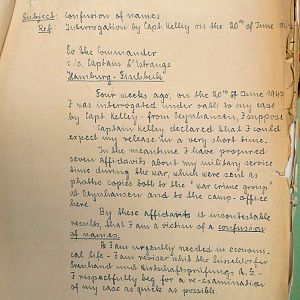 Subject: Confusion of names
Ref: Interrogation by Capt. Kelley on the 20th of June 1947
To the Commander
c/o. Captain L'Estrange
Hamburg-Fischbek
Four weeks ago, on the 20th of June 1947
I was interrogated under oath to my case
by Capt. Kelley - from Oeynhausen, I suppose
Captain Kelley declared that I could
expect my release in a very short time.
In the meantime I have procured
seven affidavits about my military service
time during the war, which were sent as
photo copies both to the "war crime group"
at Oeynhausen and to the camp-office
here.
By these affidavits it incontestable
results, that I am a victim of a confusion
of names.
As I am urgently needed in economi-
cal life - I am revisor with the Düsseldorfer
Treuhand und Wirtschaftsprüfungs A.G. -
I respectfully beg for a re-examination
of my case as quick as possible.